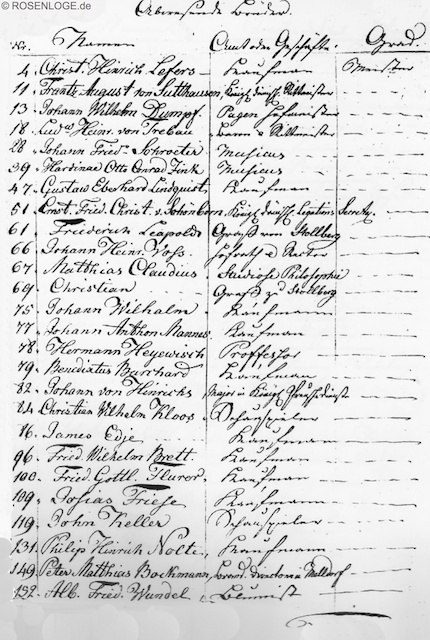 © ROSENLOGE.de
Abwesende Brüder.
No. Namen Amt oder Geschäfte. Grad.
4. Christ. Hinrich Lefers Kaufman Meister
11. Frantz August von Sutthausen, Königl. Rittmeister
13 Johann Wilhelm Dumpf. Pagen Hofmeister
18. Ludw. Heinr. von Trebau Baron u Rittmeister
28. Johann Fried. Schroeter Musicus
39 Hardinae Otto Conrad Zink Musicus
47. Gustav Eberhard Lindquist, Kaufman
51. Ernst Fried. Christ. v. Schönborn, Königl. Legations Secret.
61 Friederich Leopold Graff von Stollberg
66 Johann Heinr. Voss. Hofrath u Rector
67 Matthias Claudius Studiose Philosophie
69 Christian Graff zu Stollberg
75. Johann Wilhelm Kaufmann
77 Johann Anthon Mannes Kaufman
78. Hermann Heyewisch Proffessor
79. Benedixtus Burrhard Kaufman
82. Johann von Hinrichs Major in Königl. Dienst
Christian Wilhelm Kloos Schauspieler
James Edye Kaufmann
96. Fried. Wilhelm Brett Kaufman
100. Fried. Gottl. Fluror. Kaufman
109. Josias Friese Kaufmann
119. John Keller Schauspieler
131. Philip Hinrich Nolte, Kaufmann
149. Peter Matthias Bockmann, in Melldorf
152. Alb. Fried. Wundel Blumist